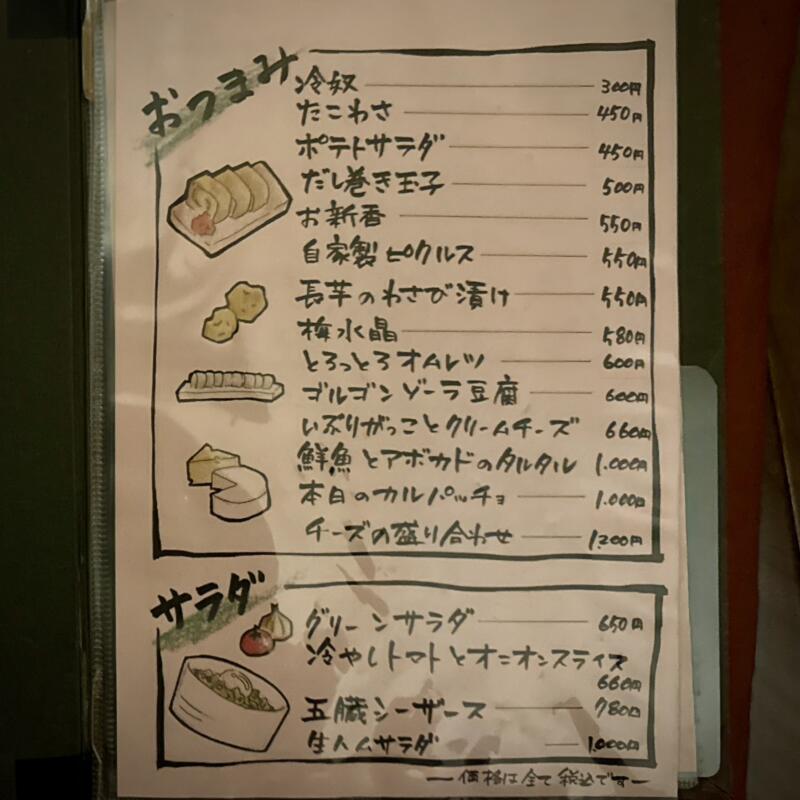 おつまみ
冷奴 300円
たこわさ 450円
ポテトサラダ 450円
だし巻き玉子 500円
お新香 550円
自家製ピクルス 550円
長芋のわさび漬け 550円
梅水晶 580円
とろっとろオムレツ 600円
ゴルゴンゾーラ豆腐 600円
いぶりがっことクリームチーズ 660円
鮮魚とアボカドのタルタル 1.000円
本日のカルパッチョ 1.000円
チーズの盛り合わせ 1.200円
サラダ
グリーンサラダ 650円
冷やしトマトとオニオンスライス
660円
五臓シーザース 780円
生ハムサラダ 1.000円
価格は全て税込です